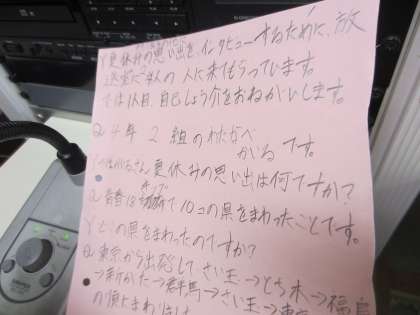 Y夏休みの思い出を、インタビューするために、放
送室に4人の人に来てもらっています。
では1人目、自己しょう介をおねがいします。
Q 4年2組の
です。
さん夏休みの思い出は何ですか?
で10コの県をまわったことです。
Yどこの県をまわったのですか?
Q 東京から出発して、さい玉→とち木→福島
→新がた→群馬→さい玉→東京
の順にまわりました